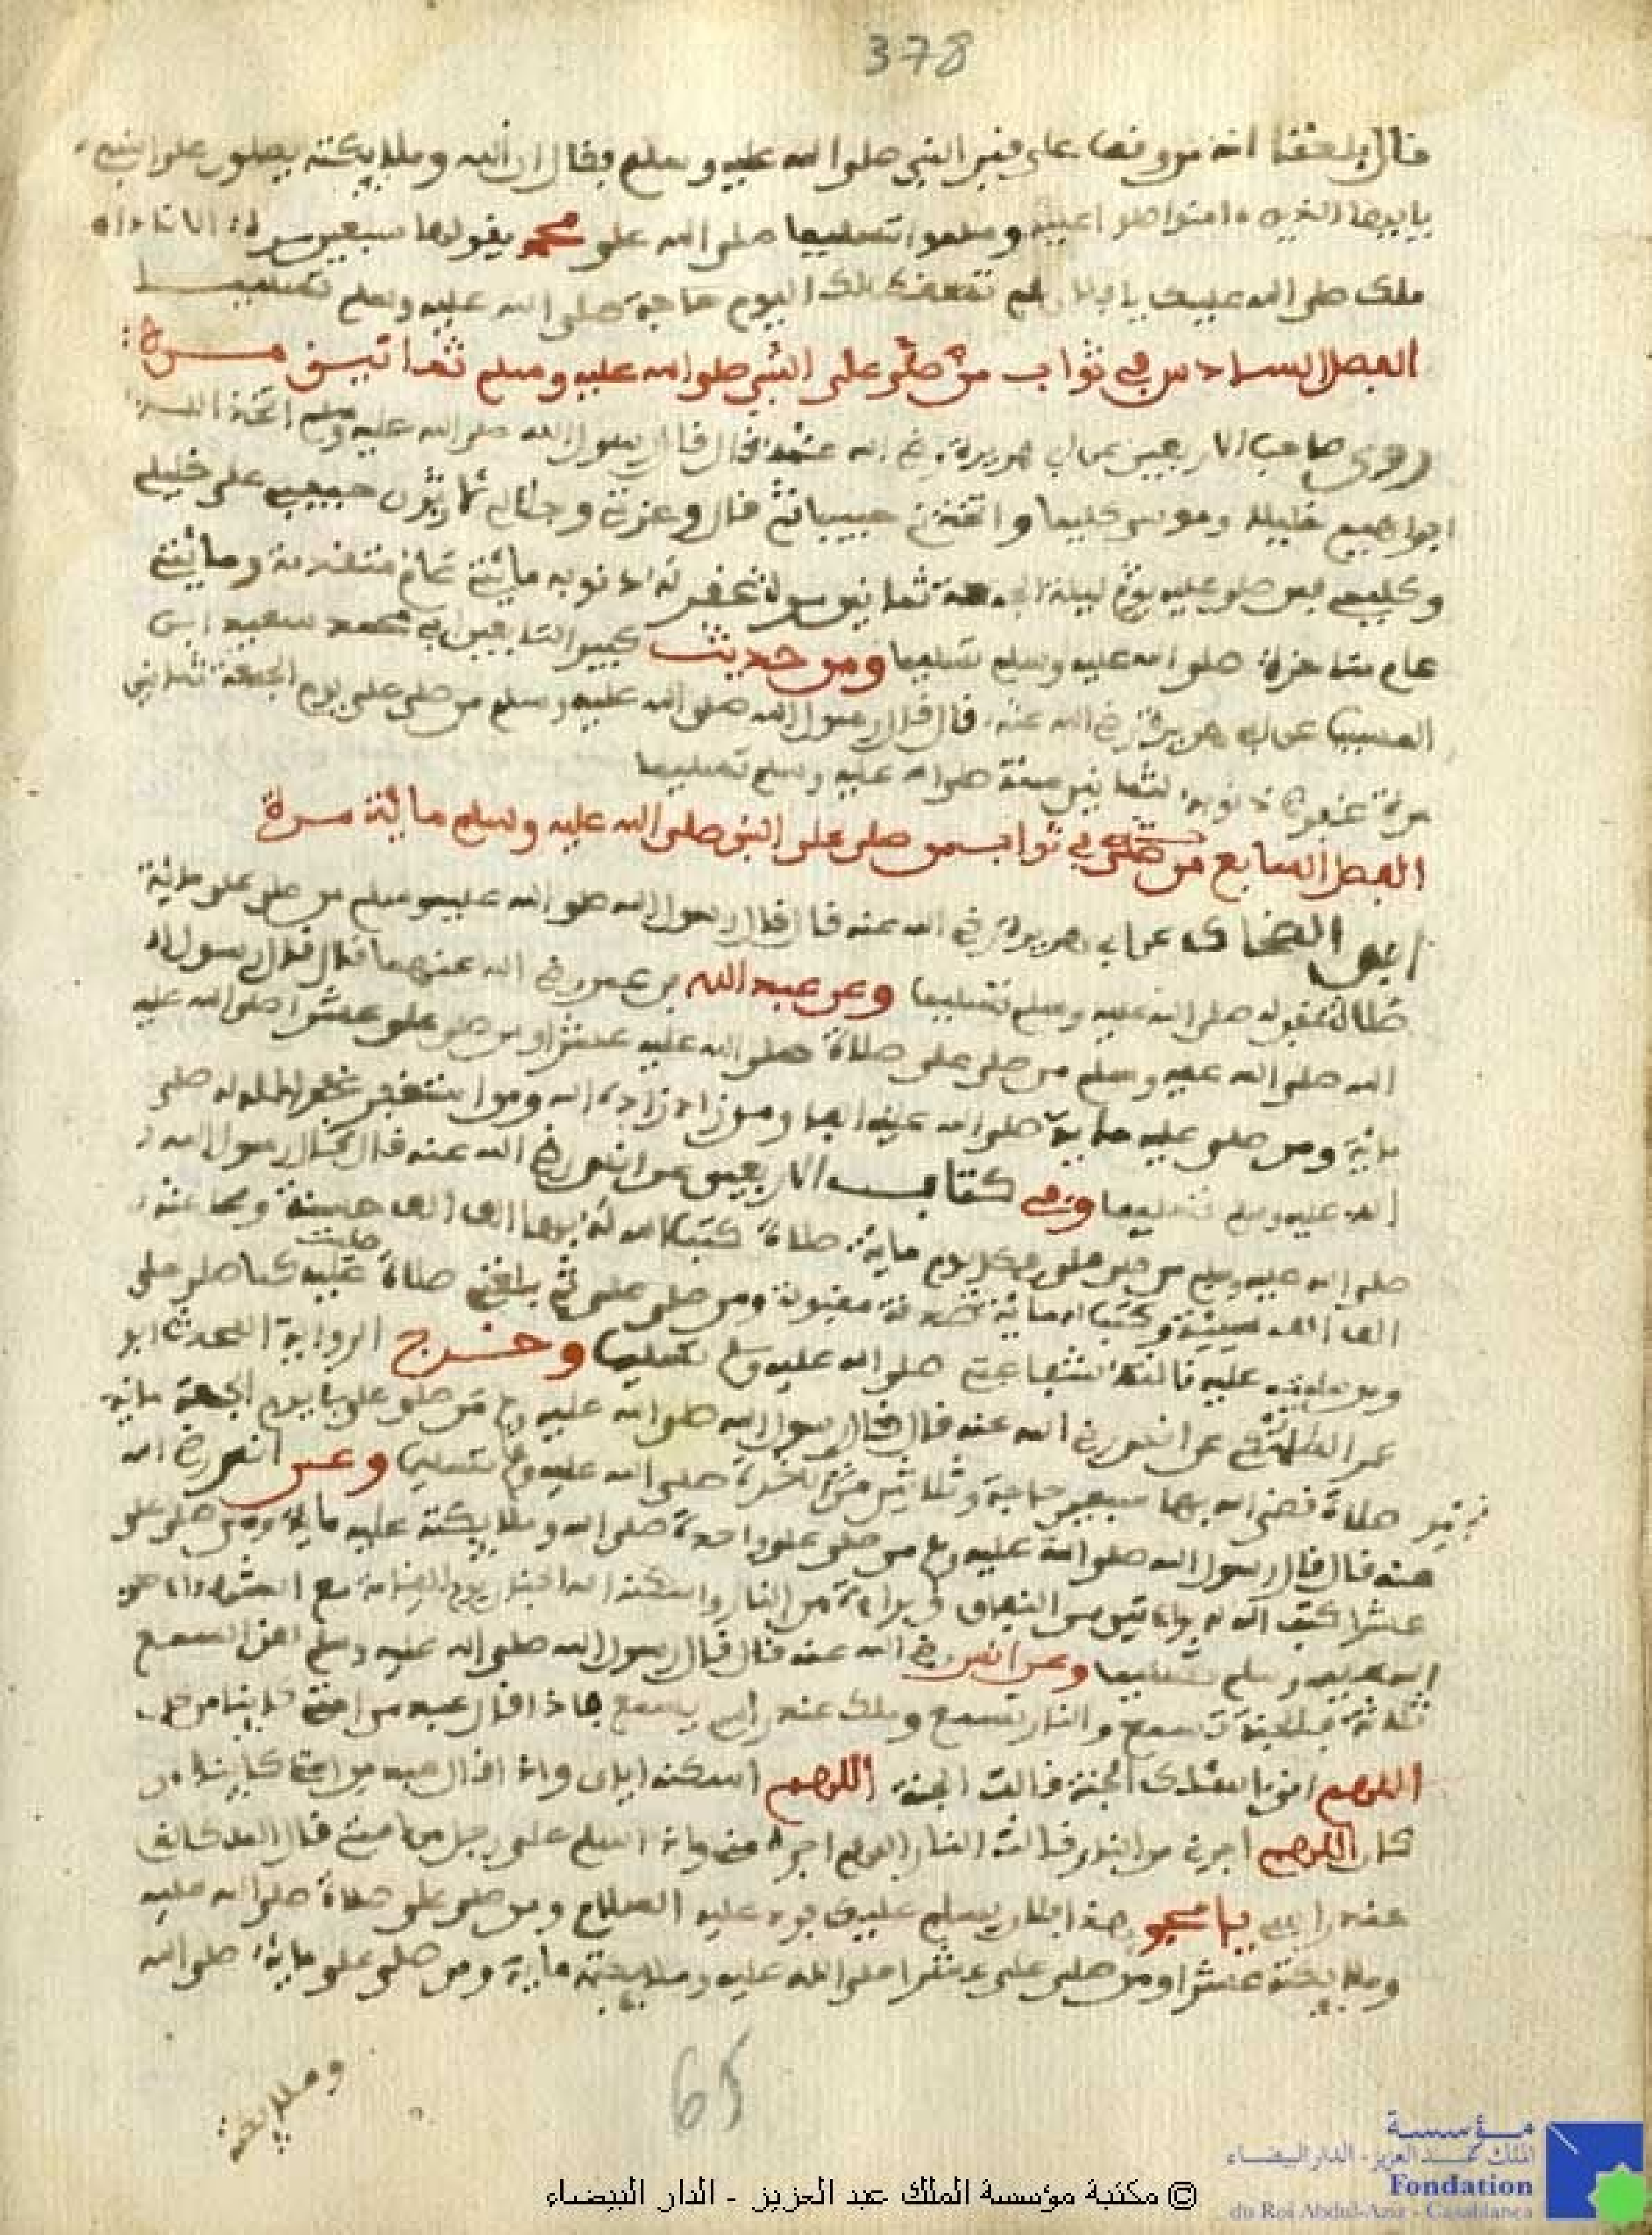 378
قال بلغنا انه من وقف على قبر النبي صلى الله عليه وسلم فقال ان الله وملايكته يصلون على النبي
يايها الذين ءامنوا صلوا عليه وسلموا تسليما صلى الله على محمد يقولها سبعين مرة الا ناداه
ملك صلى الله عليك يا فلان لم تسقط لك اليوم حاجة صلى الله عليه وسلم تسليما
الفصل السادس في ثواب من صلى على النبي صلى الله عليه وسلم ثمانين مرة
روى صاحب الاربعين عن ابي هريرة رضي الله عنه قال قال رسول الله صلى الله عليه وسلم اتخذ الله
ابراهيم خليلا وموسى كليما واتخذني حبيبا ثم قال وعزتي وجلالي لاوثرن حبيبي على خليلي
وكليمي فمن صلى عليه ليلة الجمعة ثمانين مرة غفر له ذنوبه مائتي عام متقدمة ومائتي
عام متاخرة صلى الله عليه وسلم تسليما ومن حديث كبير التابعين ابي محمد سعيد ابن
المسيب عن ابي هريرة رضي الله عنه قال قال رسول الله صلى الله عليه وسلم من صلى علي يوم الجمعة ثمانين
مرة غفرت ذنوبه ثمانين سنة صلى الله عليه وسلم تسليما
الفصل السابع في ثواب من صلى على النبي صلى الله عليه وسلم مائة مرة
عن ابي هريرة رضي الله عنه قال قال رسول الله صلى الله عليه وسلم من صلى علي مائة
صلى الله عليه وسلم تسليما وعن عبد الله بن عمر رضي الله عنهما قال قال رسول
الله صلى الله عليه وسلم من صلى علي صلاة صلى الله عليه عشرا ومن صلى علي عشرا صلى الله عليه
مائة ومن صلى عليه مائة صلى الله عليه الفا ومن زاد زاده الله ومن استغفر غفر الله له صلى
الله عليه وسلم تسليما وفي كتاب الاربعين عن انس رضي الله عنه قال قال رسول الله
صلى الله عليه وسلم من صلى علي في كل يوم مائة صلاة كتب الله له بها الف الف حسنة ومحا عنه
الف الف سيئة وكتب له مائة صدقة مقبولة ومن صلى علي ثم بلغتني صلاة صليت عليه كما صلى علي
ومن صليت عليه نالته شفاعتي صلى الله عليه وسلم تسليما وخرج الرواية المحدث ابو
عن انس رضي الله عنه قال قال رسول الله صلى الله عليه وسلم من صلى علي يوم الجمعة مائة
صلاة قضى الله بها سبعين حاجة وثلاثين من الاخرة صلى الله عليه وسلم تسليما وعن انس رضي الله
عنه قال قال رسول الله صلى الله عليه وسلم من صلى علي واحدة صلى الله وملايكته عليه مائة ومن صلى علي
عشرا كتب الله له براءتين من النفاق وبراءة من النار واسكنه الله الجنة يوم القيامة مع الشهداء صلى
الله عليه وسلم تسليما وعن انس رضي الله عنه قال قال رسول الله صلى الله عليه وسلم السمع
ثلاثة فالجنة تسمع والنار تسمع وملك عند راسي يسمع فاذا قال عبد من امتي كاينا من كان
اللهم اني اسئلك الجنة قالت الجنة اللهم اسكنه اياي واذا قال عبد من امتي كاينا من
كان اللهم اجرني من النار قالت النار اللهم اجره مني واذا سلم علي رجل من امتي قال الملك الذي
عند راسي يا محمد هذا فلان يسلم عليك فرد عليه السلام ومن صلى علي صلاة صلى الله عليه
وملايكته عشرا ومن صلى علي عشرا صلى الله عليه وملايكته مائة ومن صلى علي مائة صلى الله
وملايكته
65
مؤسسة
الملك عبد العزيز - الدار البيضاء
Fondation
du Roi Abdul-Aziz - Casablanca
© مكتبة مؤسسة الملك عبد العزيز - الدار البيضاء